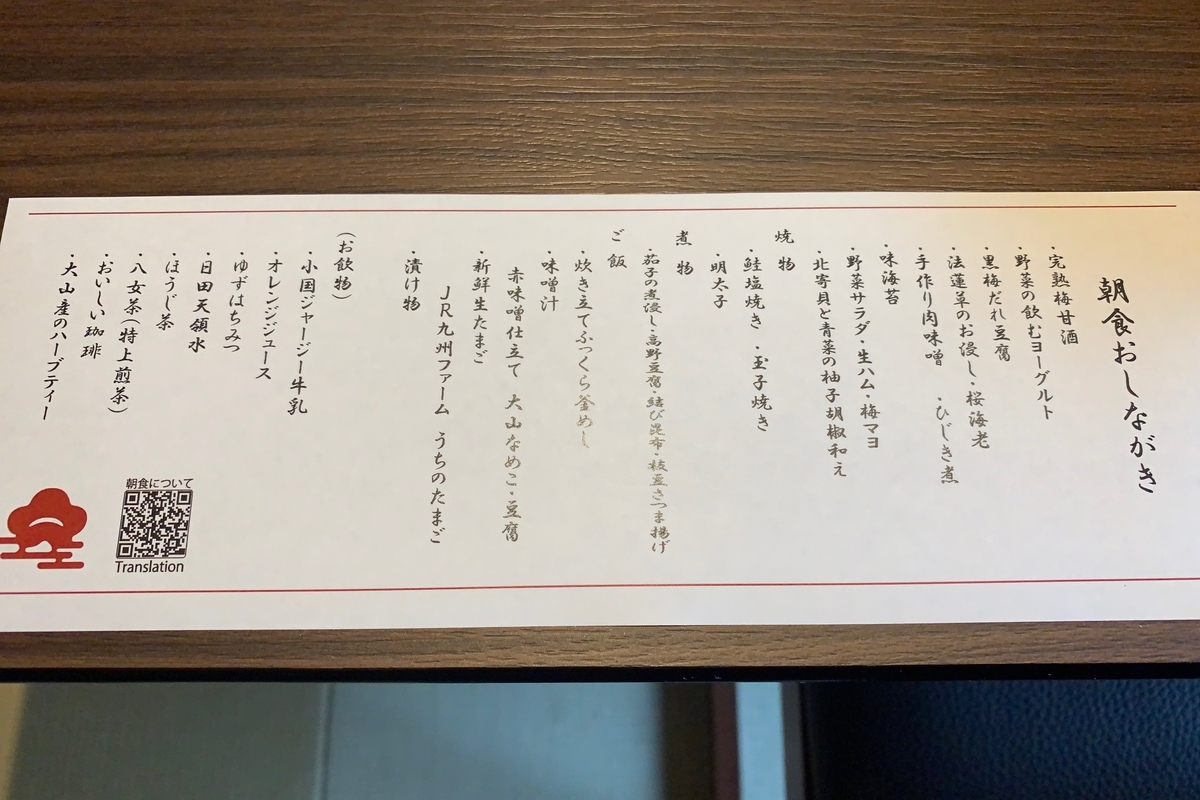 朝食おしながき
・完熟梅甘酒
・野菜の飲むヨーグルト
・黒梅だれ豆腐
・法蓮草のお浸し・桜海老
・手作り肉味噌　・ひじき煮
・味海苔
・野菜サラダ・生ハム・梅マヨ
・北寄貝と青菜の柚子胡椒和え
焼物
・鮭塩焼き　・玉子焼き
・明太子
煮物
・茄子の煮浸し・高野豆腐・結び昆布・枝豆さつま揚げ
ご飯
・炊き立てふっくら釜めし
・味噌汁
赤味噌仕立て　大山なめこ・豆腐
・新鮮生たまご
JR九州ファーム　うちのたまご
・漬け物
（お飲物）
・小国ジャージー牛乳
・オレンジジュース
・ゆずはちみつ
・日田天領水
・ほうじ茶
・八女茶（特上煎茶）
・おいしい珈琲
・大山産のハーブティー
朝食について
Translation